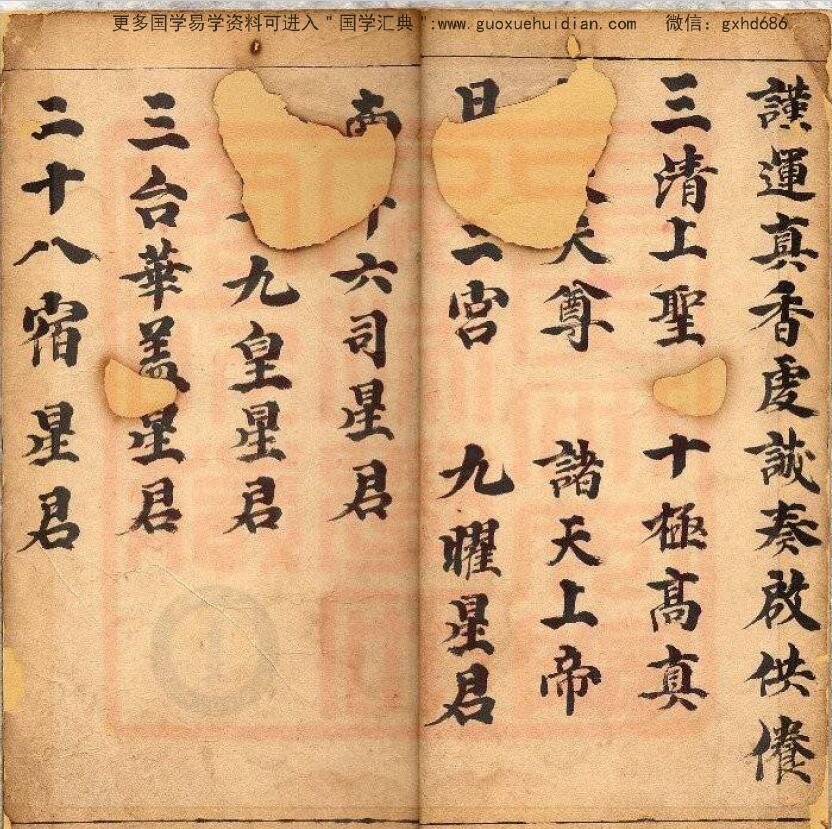 更多国学易学资料可进入＂国学汇典＂:www.guoxuehuidian.com 微信：gxhd686
謹運真香虔誠奏啟供養
三清上聖 十極高真
天尊 諸天上帝
日二宮 九曜星君
南六司星君
九皇星君
三台華盖星君
二十八宿星君